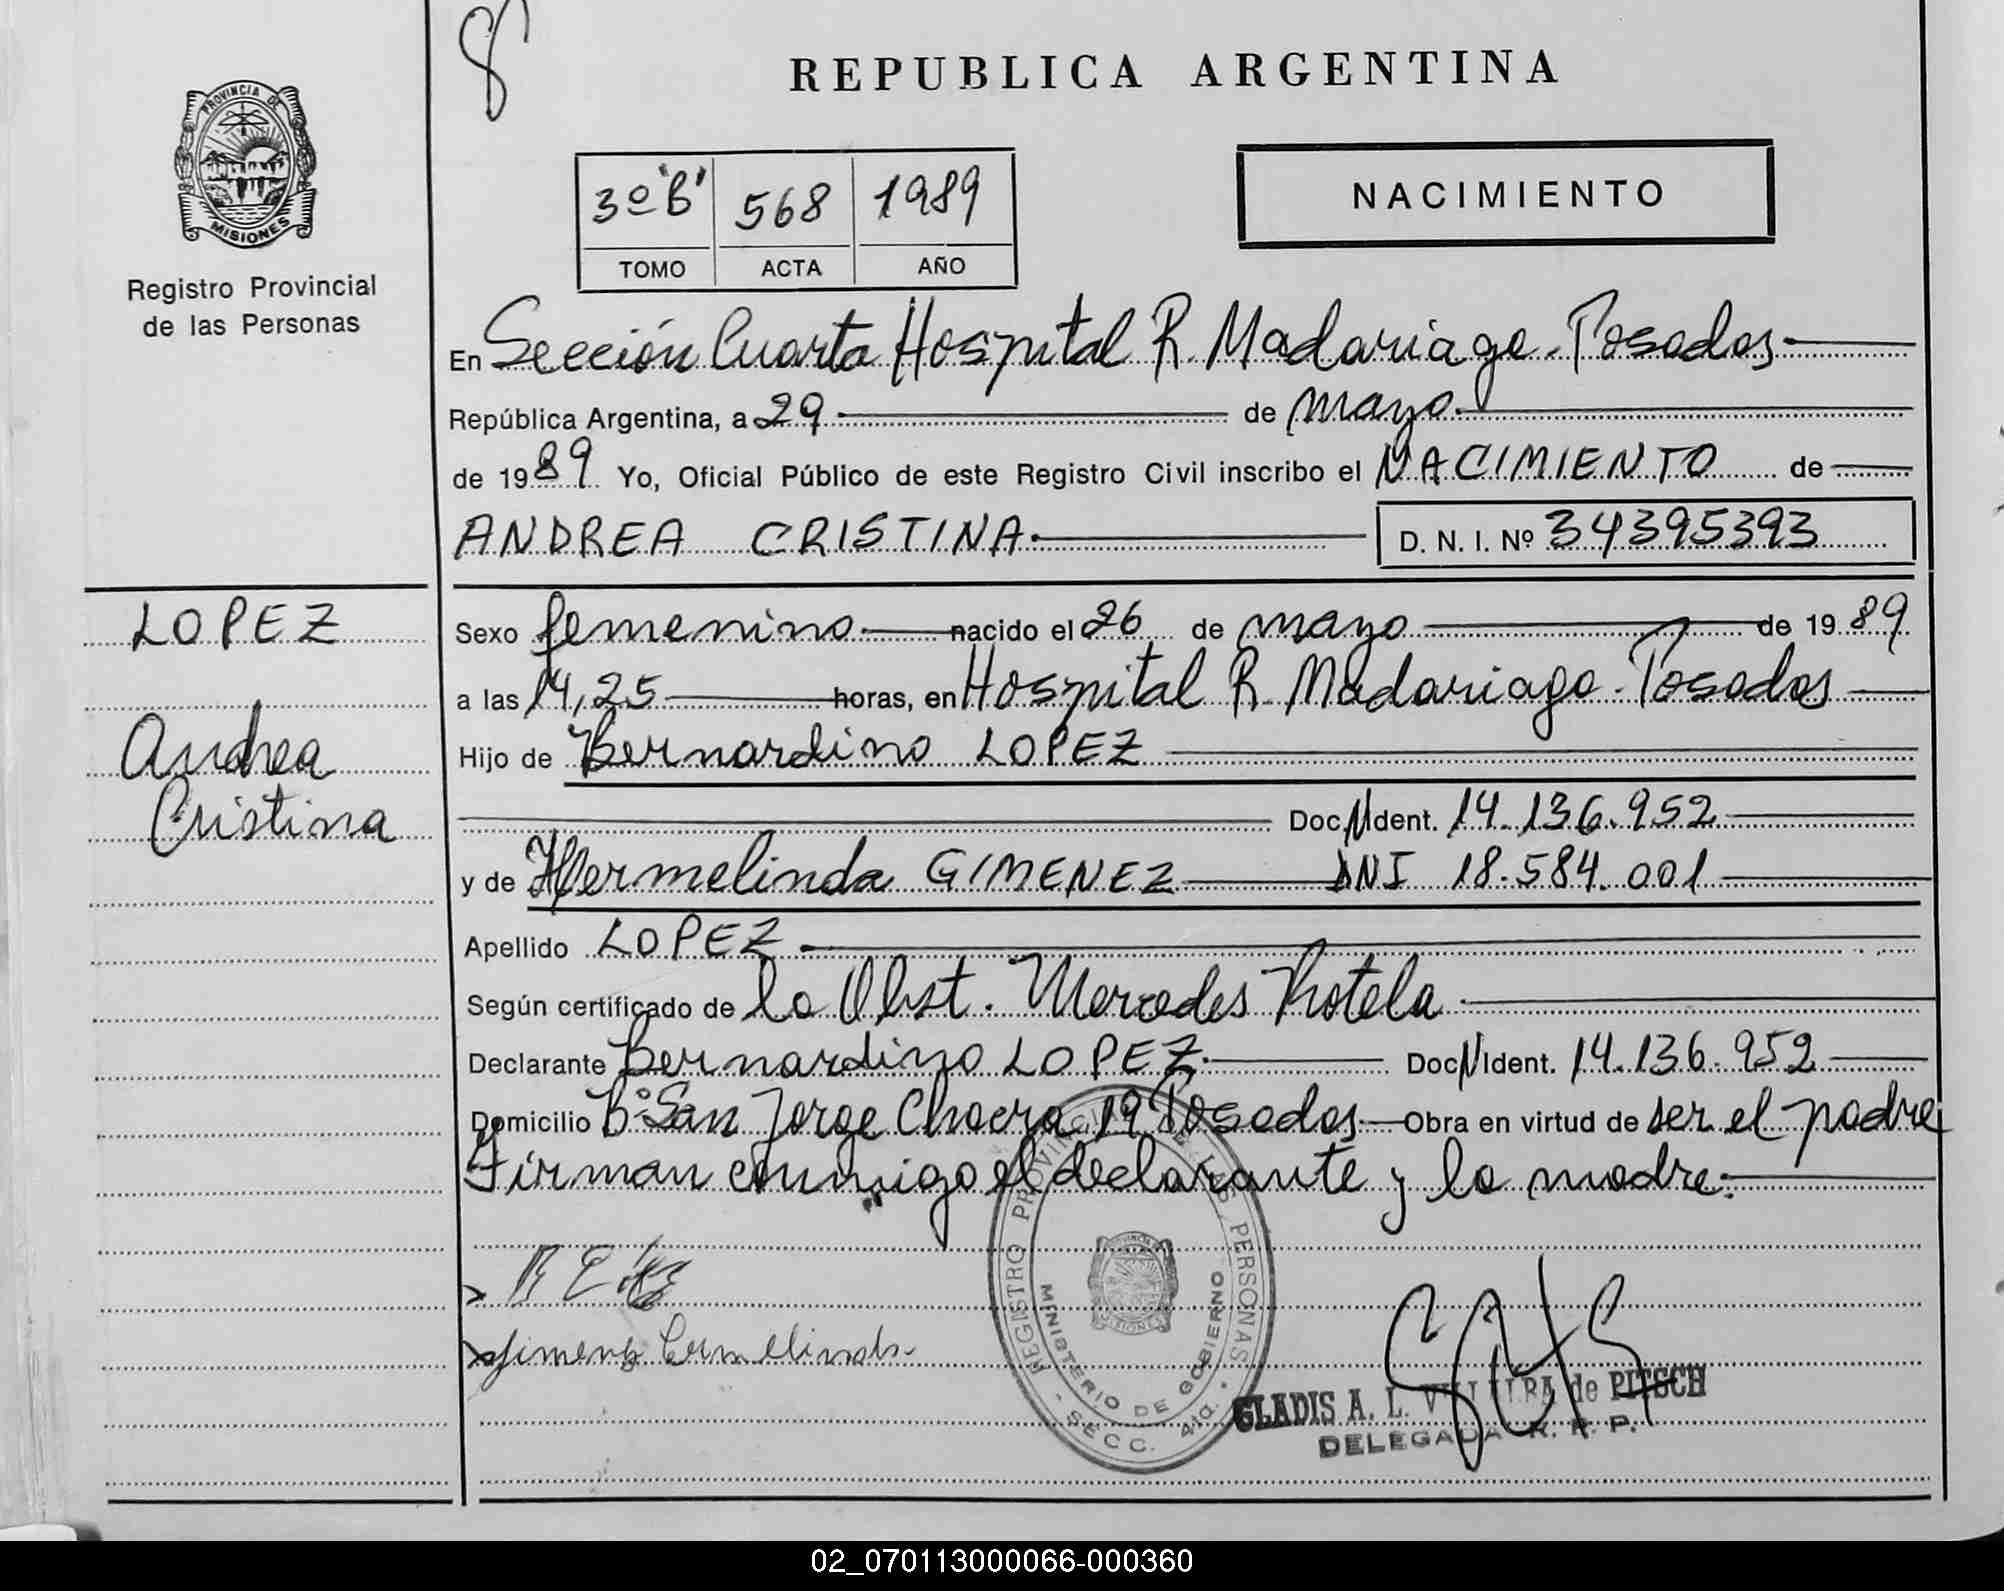 REPUBLICA ARGENTINA
PROVINCIA DE
MISIONES
Registro Provincial
de las Personas
3º "B" 568 1989
TOMO ACTA AÑO
NACIMIENTO
En Sección Cuarta Hospital R. Madariaga - Posadas
República Argentina, a 29 de mayo
de 1989 Yo, Oficial Público de este Registro Civil inscribo el NACIMIENTO de
ANDREA CRISTINA D. N. I. Nº 34395393
LOPEZ
Andrea
Cristina
Sexo femenino nacido el 26 de mayo de 1989
a las 14,25 horas, en Hospital R. Madariaga - Posadas
Hijo de Bernardino LOPEZ
Doc. N Ident. 14.136.952
y de Hermelinda GIMENEZ DNI 18.584.001
Apellido LOPEZ
Según certificado de la Obst. Mercedes Rotela
Declarante Bernardino LOPEZ Doc N Ident. 14.136.952
Domicilio Bº San Jorge Chacra 19 Posadas Obra en virtud de ser el padre
Firman conmigo el declarante y la madre.
REGISTRO PROVINCIAL DE LAS PERSONAS
MINISTERIO DE GOBIERNO
SECC. 4ta.
GLADIS A. L. de PITSCH
DELEGADA R. P. P.
02_070113000066-000360